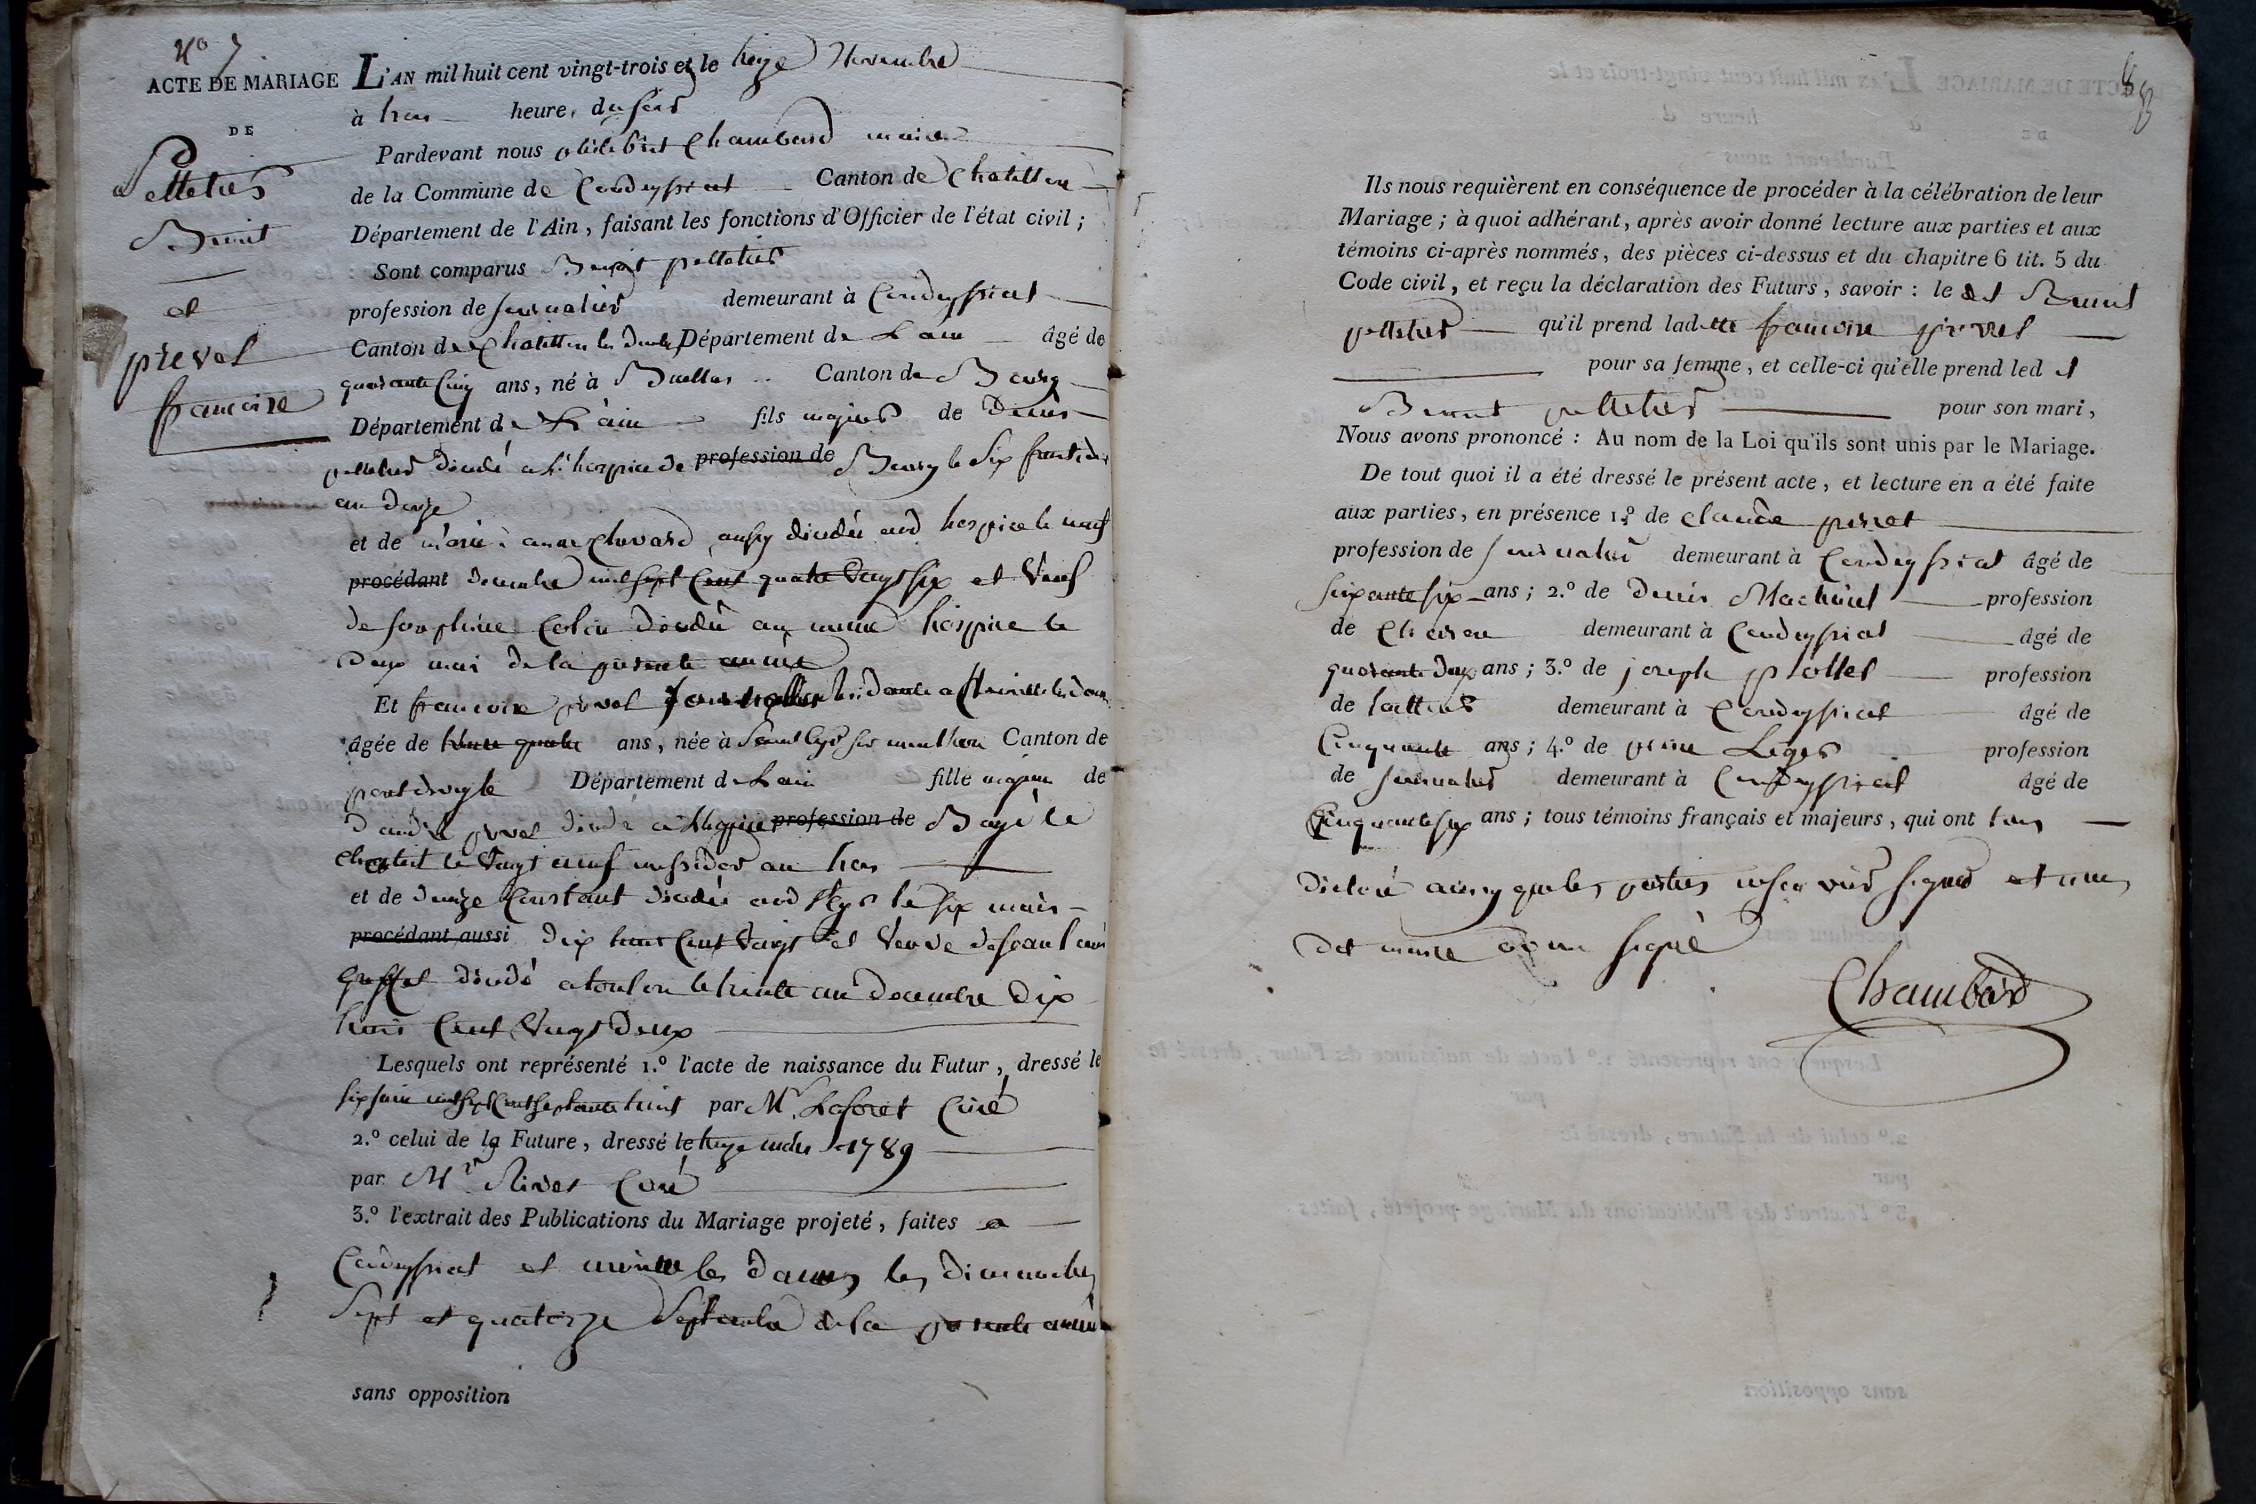 N° 7
ACTE DE MARIAGE
DE
Pelletier
Benoit
et
prevel
francoise
L'AN mil huit cent vingt-trois et le treize Novembre
à trois heure, du soir
Pardevant nous philibert Chambard maire
de la Commune de Condeyssiat Canton de Chatillon
Département de l'Ain, faisant les fonctions d'Officier de l'état civil ;
Sont comparus Benoit pelletier
profession de journalier demeurant à Condeyssiat
Canton de Chatillon les Dombes Département de Lain âgé de
quarante Cinq ans, né à Buellas Canton de Bourg
Département de L'ain fils majeur de Denis
pelletier décédé a L'hospice de profession de Bourg le six fructidor
an douze
et de marie anne Chavard aussy décédée aud hospice le neuf
procédant decembre mil sept Cent quatre Vingt six et Veuf
de josephine Colin décédée au meme hospice le
Deux mai de la presente année
Et francoise prevel journaliere residente a Neuville les dames
âgée de trente quatre ans, née à Saint Cyr sur menthon Canton de
pont de veyle Département de Lain fille majeure de
d'andré prevel décédé a profession de Bagé le
Chatel le Vingt neuf messidor an trois
et de Denize Constant décédée aud St Cyr le six mars
procédant aussi dix huit Cent Vingt et Veuve de
décédé a toulon le trente un Decembre Dix
huit Cent Vingt Deux
Lesquels ont représenté 1.° l'acte de naissance du Futur, dressé le
six juin mil sept Cent septante huit par Mr. Laforet Curé
2.° celui de la Future, dressé le treize 1789
par Mr Rivet Curé
3.° l'extrait des Publications du Mariage projeté, faites a
Condeyssiat et neuville les dames les dimanches
sept et quatorze Septembre de la presente année
sans opposition
Ils nous requièrent en conséquence de procéder à la célébration de leur
Mariage ; à quoi adhérant, après avoir donné lecture aux parties et aux
témoins ci-après nommés, des pièces ci-dessus et du chapitre 6 tit. 5 du
Code civil, et reçu la déclaration des Futurs, savoir : le dt Benoit
pelletier qu'il prend ladette francoise prevel
pour sa femme, et celle-ci qu'elle prend led t
Benoit pelletier pour son mari,
Nous avons prononcé : Au nom de la Loi qu'ils sont unis par le Mariage.
De tout quoi il a été dressé le présent acte, et lecture en a été faite
aux parties, en présence 1.° de claude perret
profession de journalier demeurant à Condeyssiat âgé de
soixante six ans ; 2.° de Denis Mochonet profession
de demeurant à Condeyssiat âgé de
quarante deux ans ; 3.° de joseph profession
de demeurant à Condeyssiat âgé de
Cinquante ans ; 4.° de pierre Leger profession
de journalier demeurant à Condeyssiat âgé de
Cinquante six ans ; tous témoins français et majeurs, qui ont tous
déclaré ainsy que les parties ne scavoir signer et nous
dit maire avons signé
Chambard